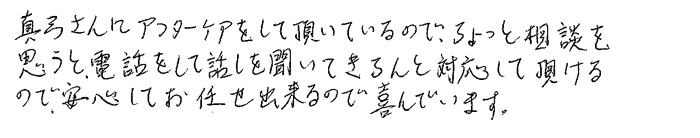 真弓さんにアフターケアをして頂いているので、ちょっと相談を
思うと、電話をして話しを聞いてきちんと対応して頂ける
ので、安心してお任せ出来るので喜んでいます。